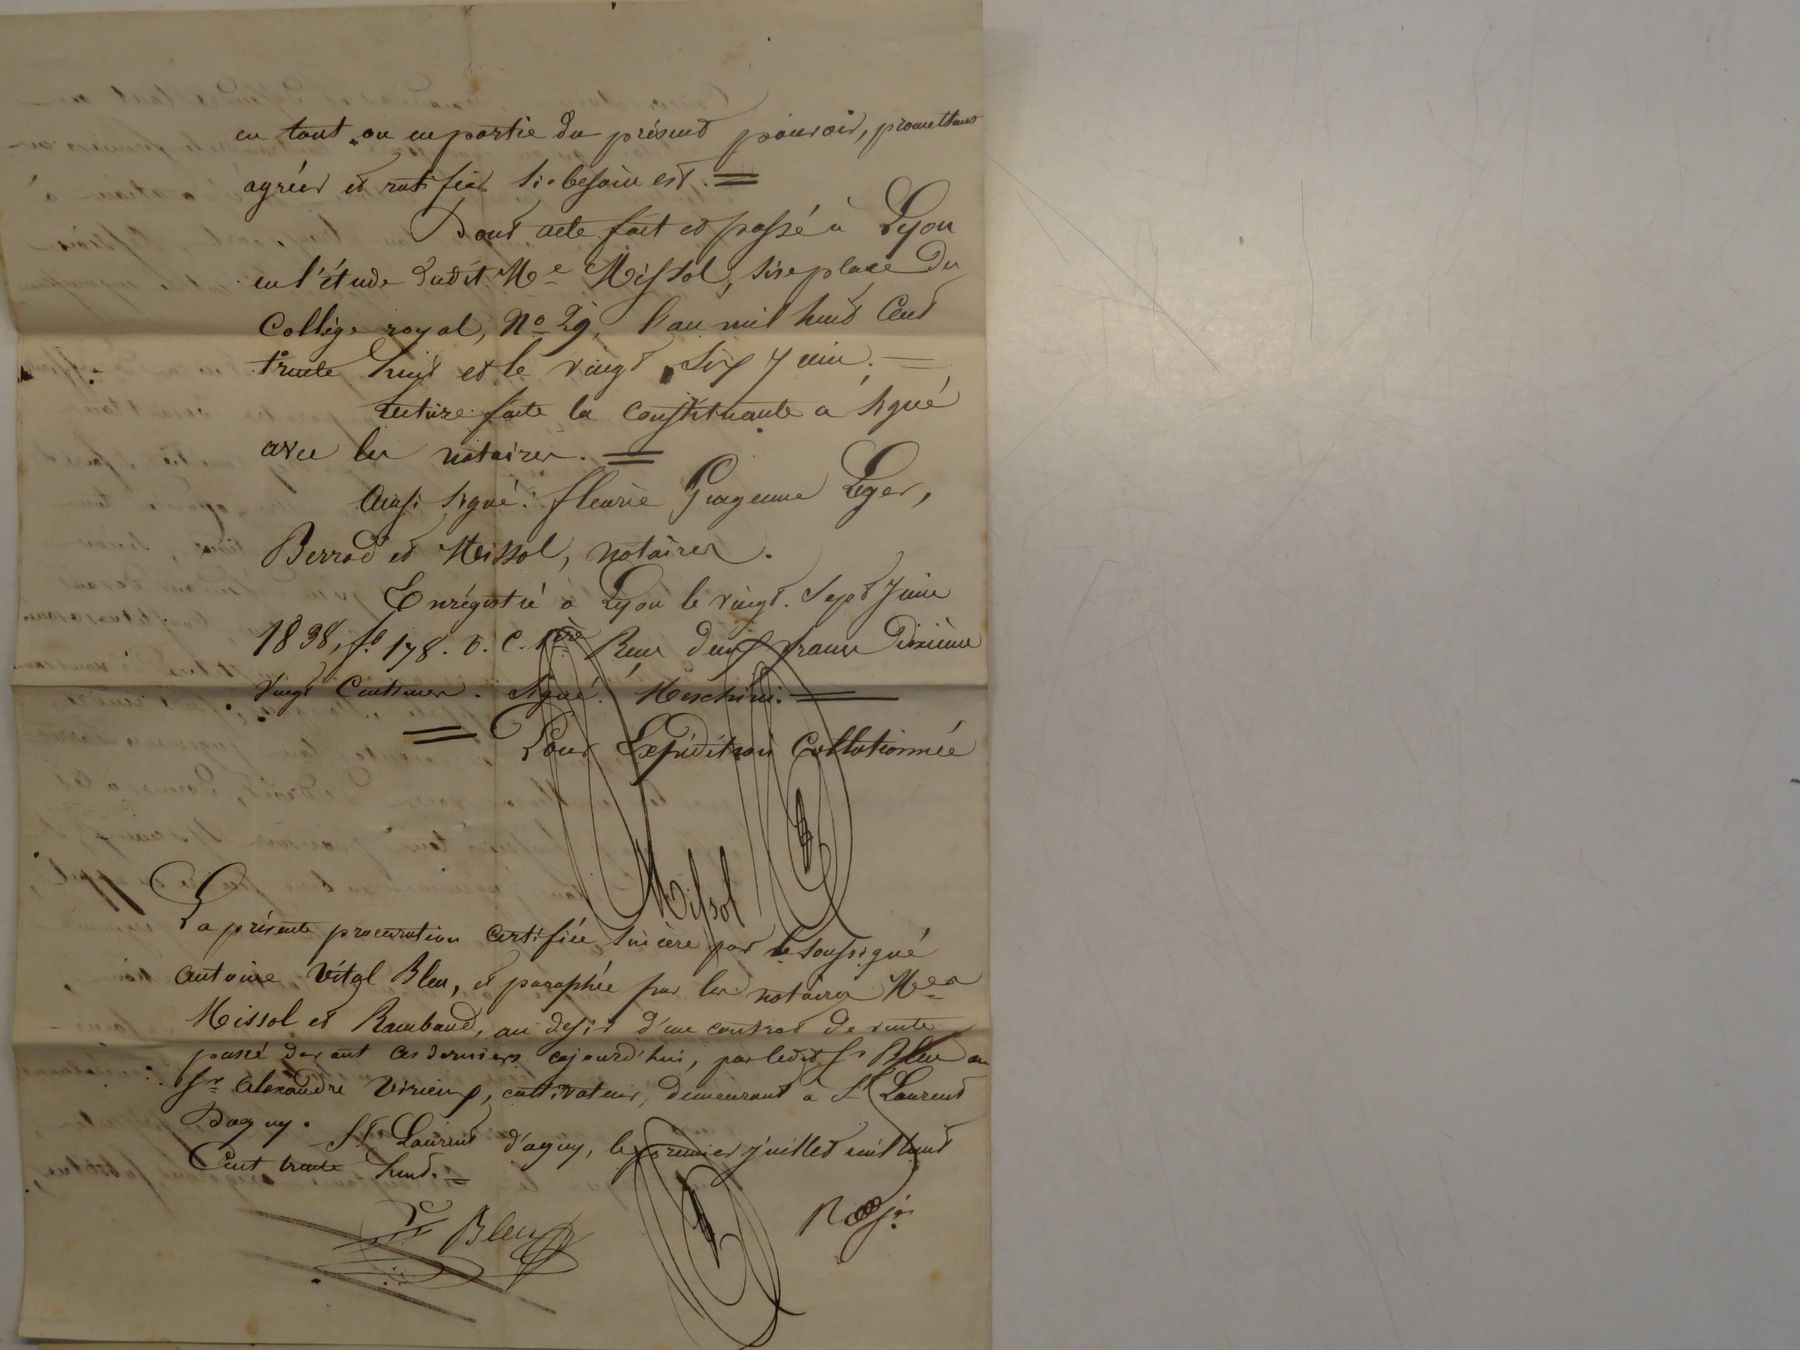 en tout ou en partie du présent pouvoir, promettant
agréer et ratifier si besoin est.
Dont acte fait et passé à Lyon
en l'étude dudit Me Missol, sise place du
Collége royal, No 29, l'an mil huit cent
trente huit et le vingt six Juin.
Lecture faite la constituante a signé
avec les notaires.
Ainsi signé: fleurie Leger,
Berrod et Missol, notaires.
Enrégistré à Lyon le vingt-sept Juin
1838, fo 178. v. C. 1ère Reçu deux francs dixième
vingt Centimes. Signé: Meschini.
Pour Expédition Collationnée
Missol
La présente procuration certifiée sincère par le soussigné
Antoine Vital Bleu, et paraphée par les notaires Mes
Missol et Rambaud, au desir d'un contrat de vente
passé devant ces derniers cejourd'hui, par ledit Sr Bleu au
Sr Alexandre Virieux, cultivateur, demeurant à St Laurent
Dagny. St Laurent d'agny, le premier Juillet mil huit
Cent trente huit.
Bleu